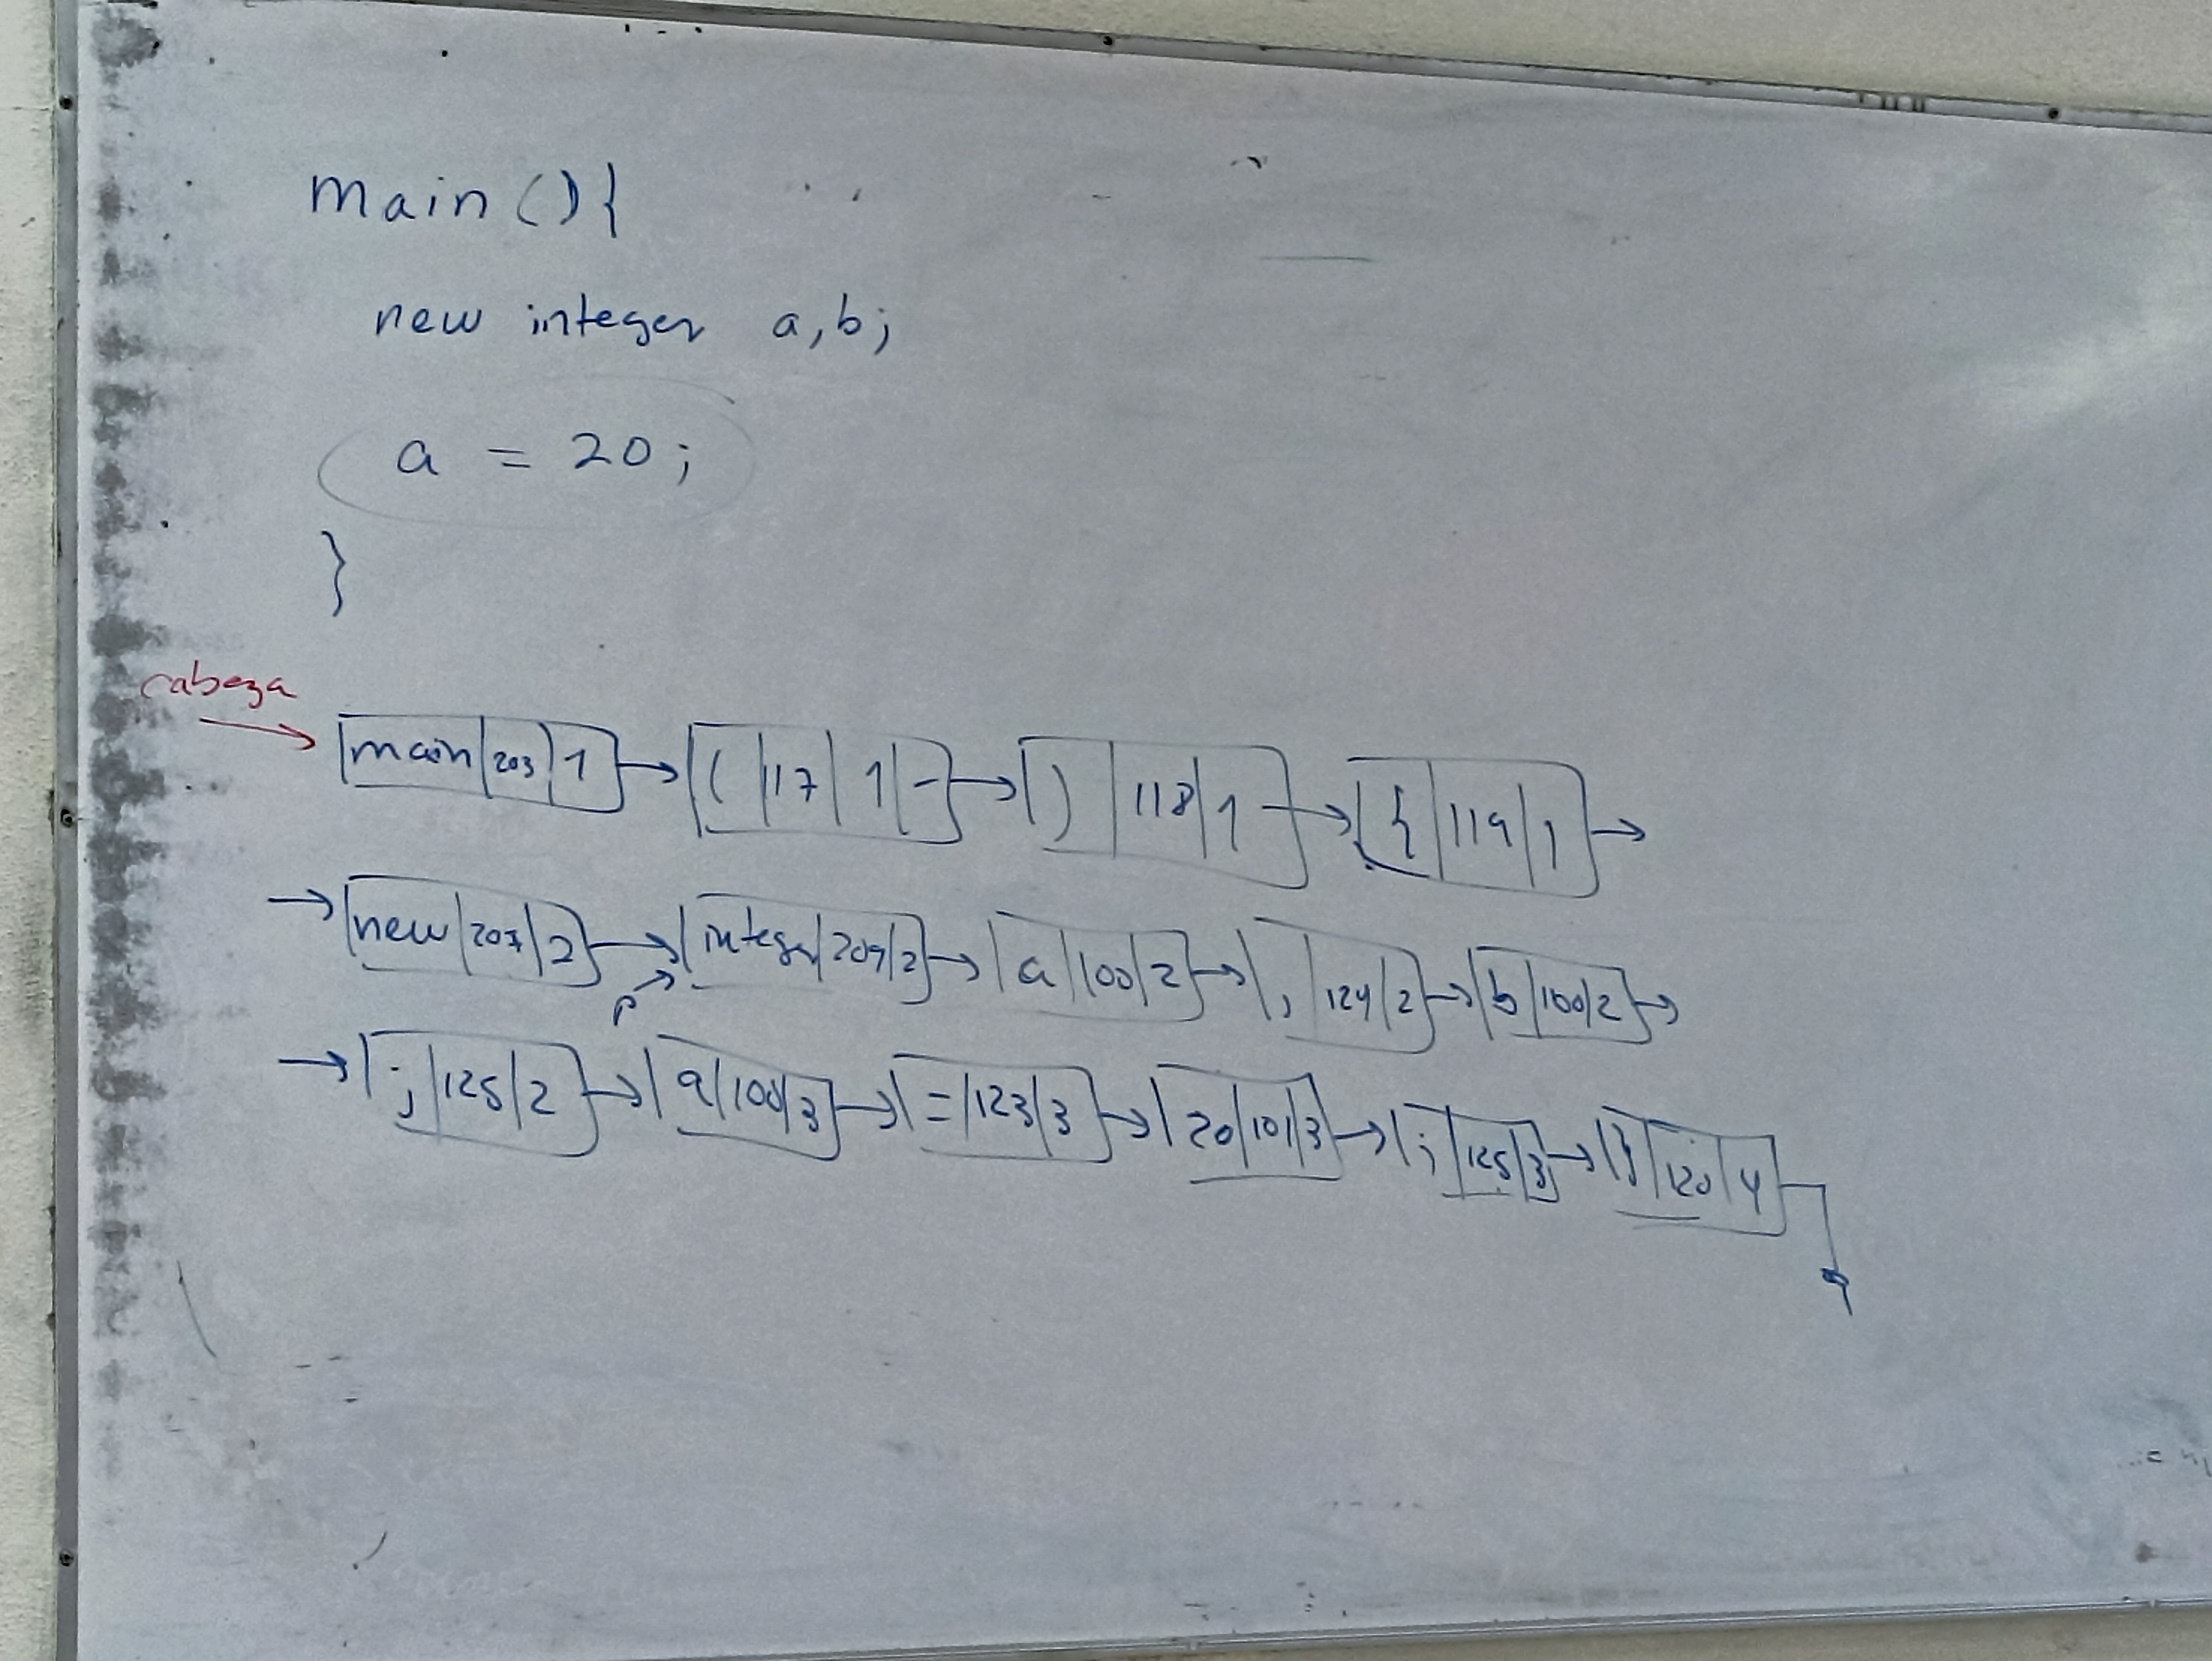 main(){
new integer a,b;
a = 20;
}
cabeza
main|203|1 → ( |117| 1| → ) |118|1 → { |119|1 →
→ new|207|2 → integer|209|2 → a|100|2 → , |124|2 → b|100|2 →
p
→ ; |125|2 → a|100|3 → =|123|3 → 20|101|3 → ; |125|3 → }|120|4